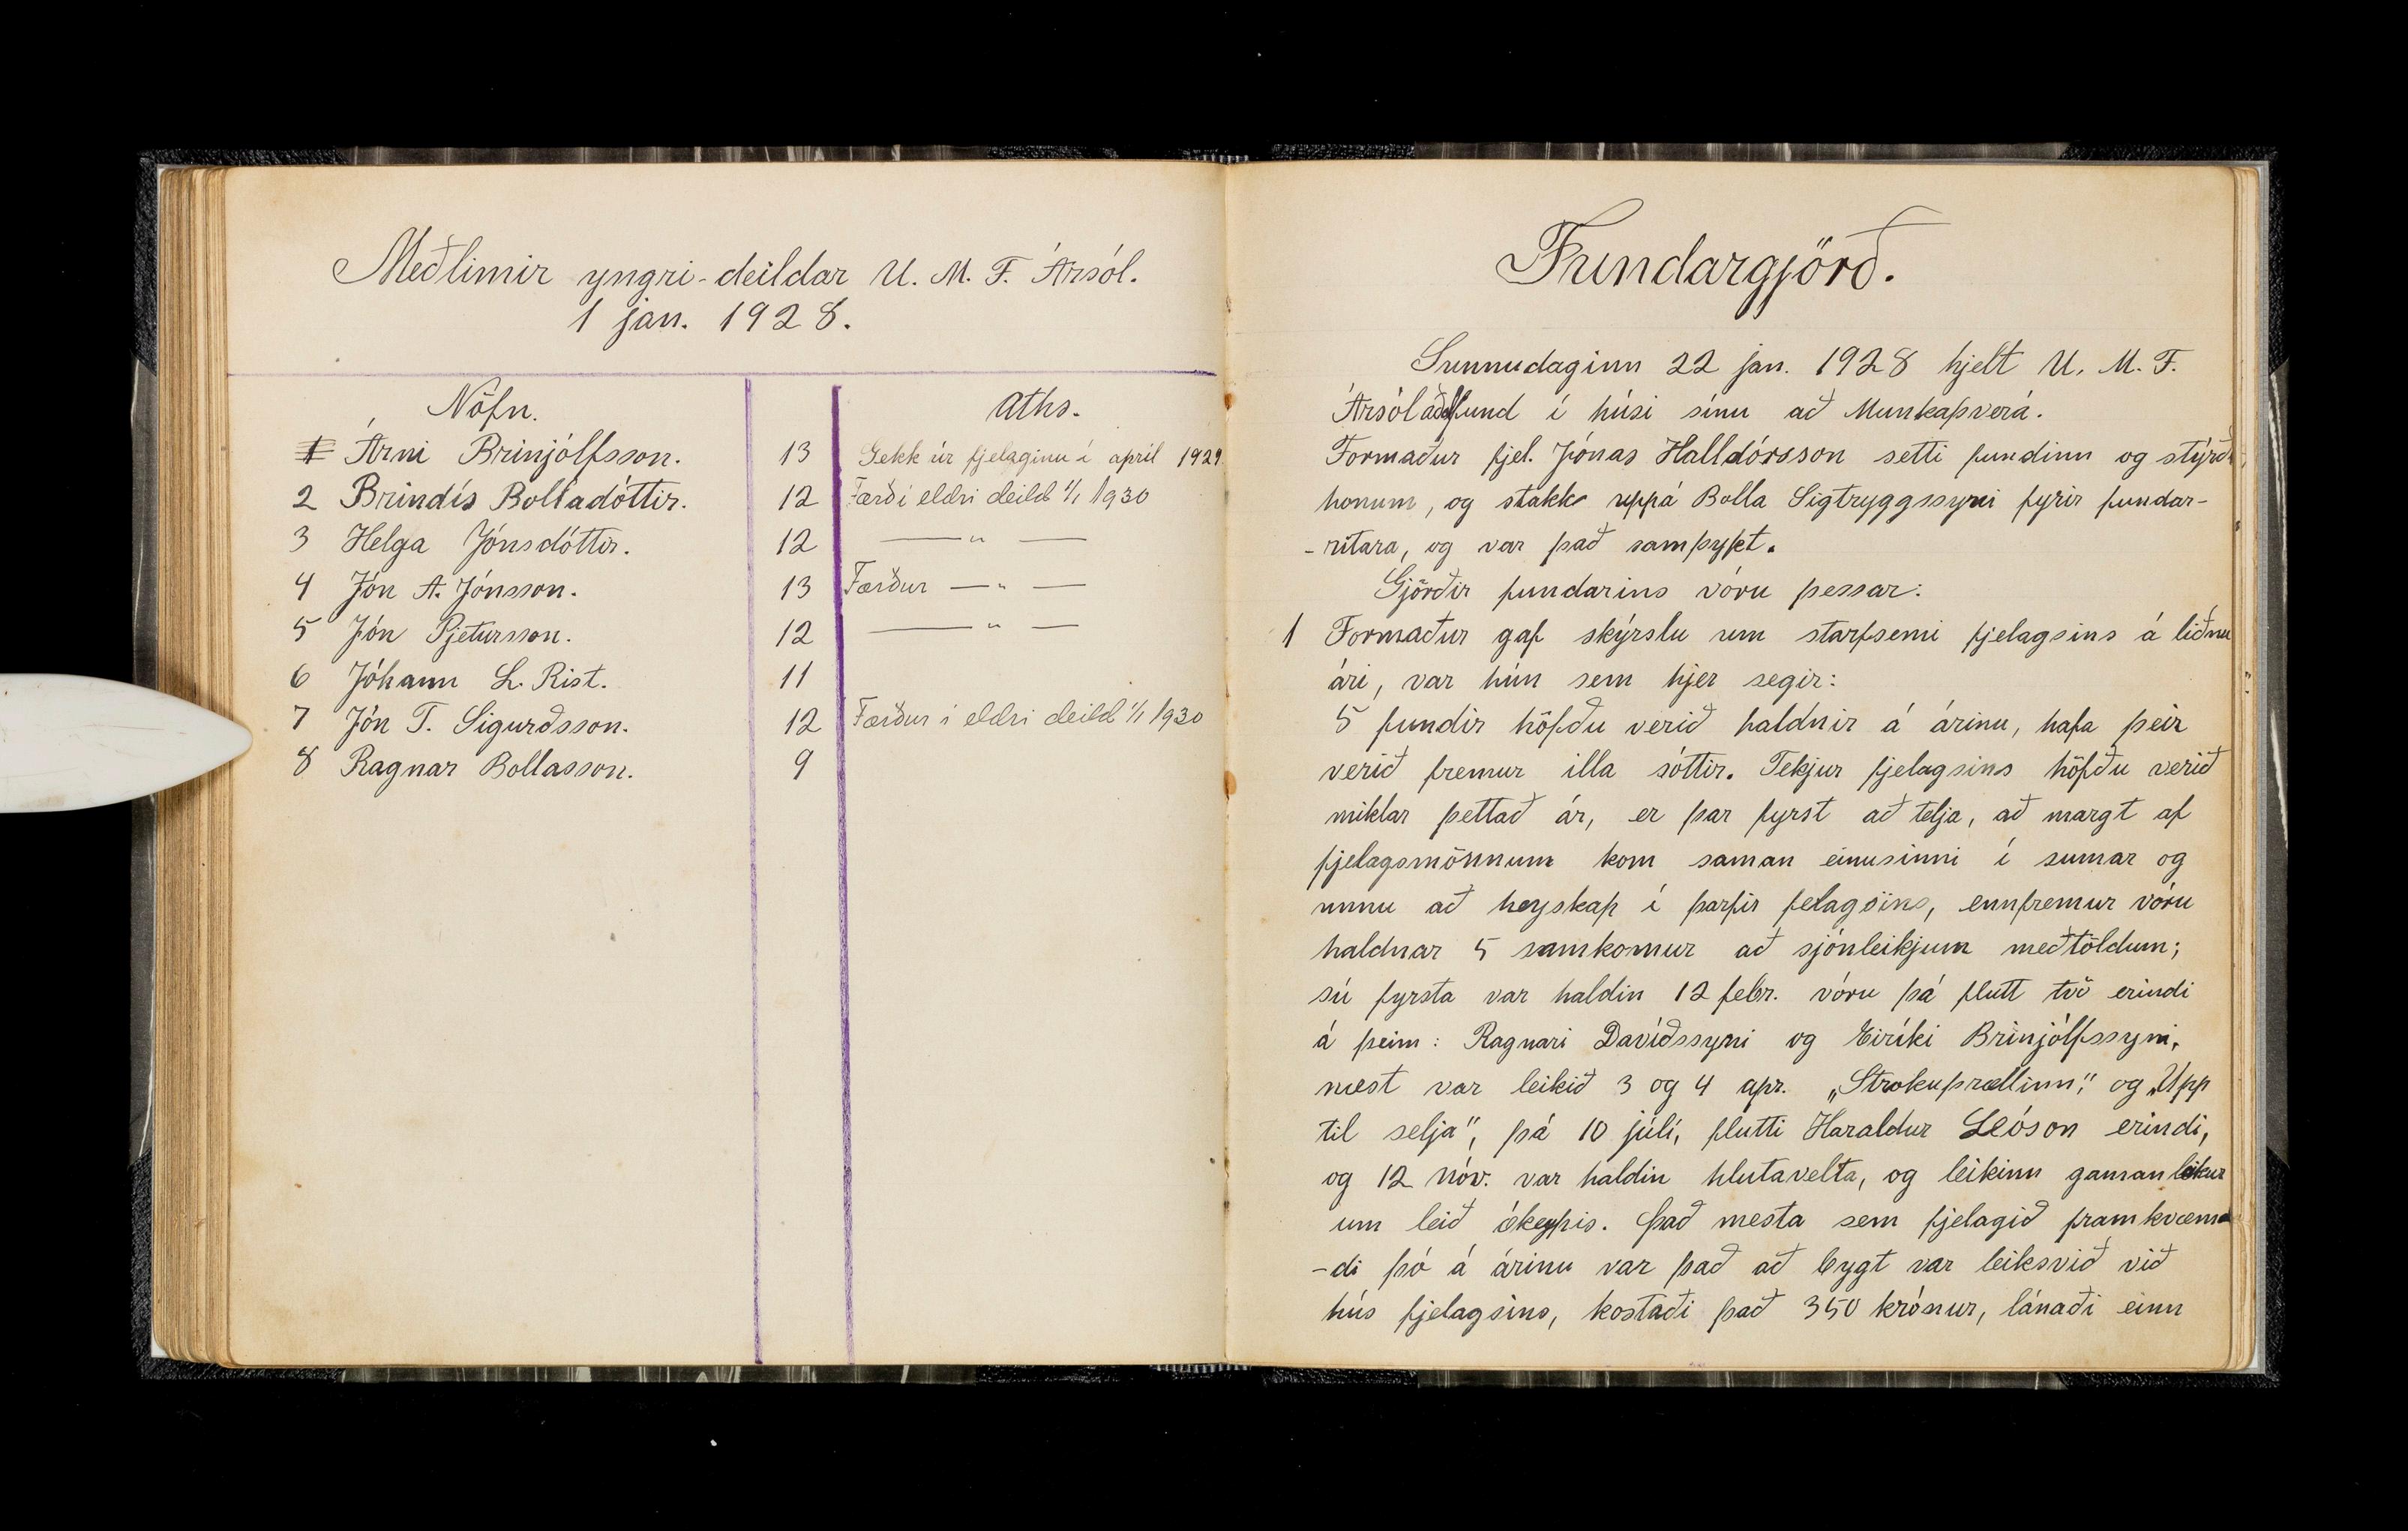 Meðlimir yngri-deildar U. M. F. Ársól.
1 jan. 1928.
Nöfn. Aths.
1 Árni Brinjólfsson. 13 Gekk úr fjelaginu í apríl 1929.
2 Brindís Bolladóttir. 12 Færð í eldri deild 1/1 1930
3 Helga Jónsdóttir. 12 — " —
4 Jón A. Jónsson. 13 Færður — " —
5 Jón Pjetursson. 12 — " —
6 Jóhann L. Rist. 11
7 Jón T. Sigurðsson. 12 Færður í eldri deild 1/1 1930
8 Ragnar Bollasson. 9
Fundargjörð.
Sunnudaginn 22 jan. 1928 hjelt U. M. F.
Ársól aðalfund í húsi sínu að Munkaþverá.
Formaður fjel. Jónas Halldórsson setti fundinn og stýrði
honum, og stakk uppá Bolla Sigtryggssyni fyrir fundar-
-ritara, og var það samþykt.
Gjörðir fundarins vóru þessar:
1 Formaður gaf skýrslu um starfsemi fjelagsins á liðnu
ári, var hún sem hjer segir:
5 fundir höfðu verið haldnir á árinu, hafa þeir
verið fremur illa sóttir. Tekjur fjelagsins höfðu verið
miklar þettað ár, er þar fyrst að telja, að margt af
fjelagsmönnum kom saman einusinni í sumar og
unnu að heyskap í þarfir felagsins, ennfremur vóru
haldnar 5 samkomur að sjónleikjum meðtöldum;
sú fyrsta var haldin 12 febr. vóru þá flutt tvö erindi
á þeim: Ragnari Davíðssyni og Eiríki Brinjólfssyni,
næst var leikið 3 og 4 apr. „Strokuþrællinn", og „Upp
til selja", þá 10 júlí, flutti Haraldur Leóson erindi,
og 12 nóv. var haldin hlutavelta, og leikinn gamanleikur
um leið ókeypis. Það mesta sem fjelagið framkvæm-
-di þó á árinu var það að bygt var leiksvið við
hús fjelagsins, kostaði það 350 krónur, lánaði einn